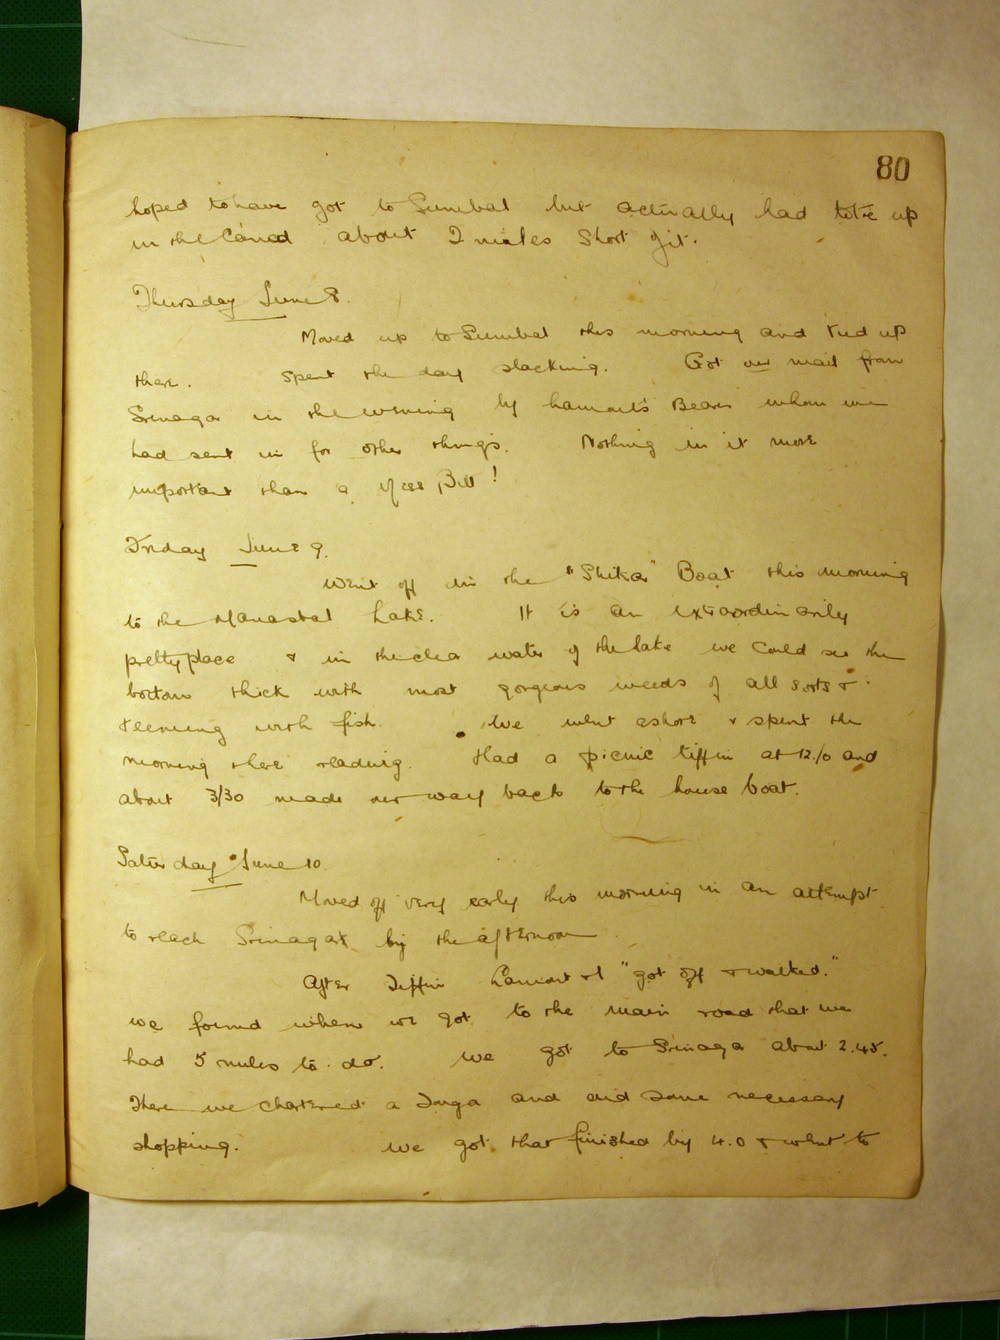 80
hoped to have got to Sumbal but actually had to tie up
in the Canal about 2 miles short of it.
Thursday June 8.
Moved up to Sumbal this morning and tied up
there. Spent the day slacking. Got our mail from
Srinagar in the evening by Lamont's Bearer whom we
had sent in for other things. Nothing in it more
important than a Bill!
Friday June 9.
Went off in the "Shikar" Boat this morning
to the Manasbal Lake. It is an extraordinarily
pretty place & in the clear water of the lake we could see the
bottom thick with most gorgeous weeds of all sorts &
teeming with fish. We went ashore & spent the
morning there reading. Had a picnic tiffin at 12/0 and
about 3/30 made our way back to the house boat.
Saturday June 10.
Moved off very early this morning in an attempt
to reach Srinagar by the afternoon.
After Tiffin Lamont & I "got off & walked."
We found when we got to the main road that we
had 5 miles to do. We got to Srinagar about 2.45.
There we chartered a Tonga and did some necessary
shopping. We got that finished by 4.0 & went to